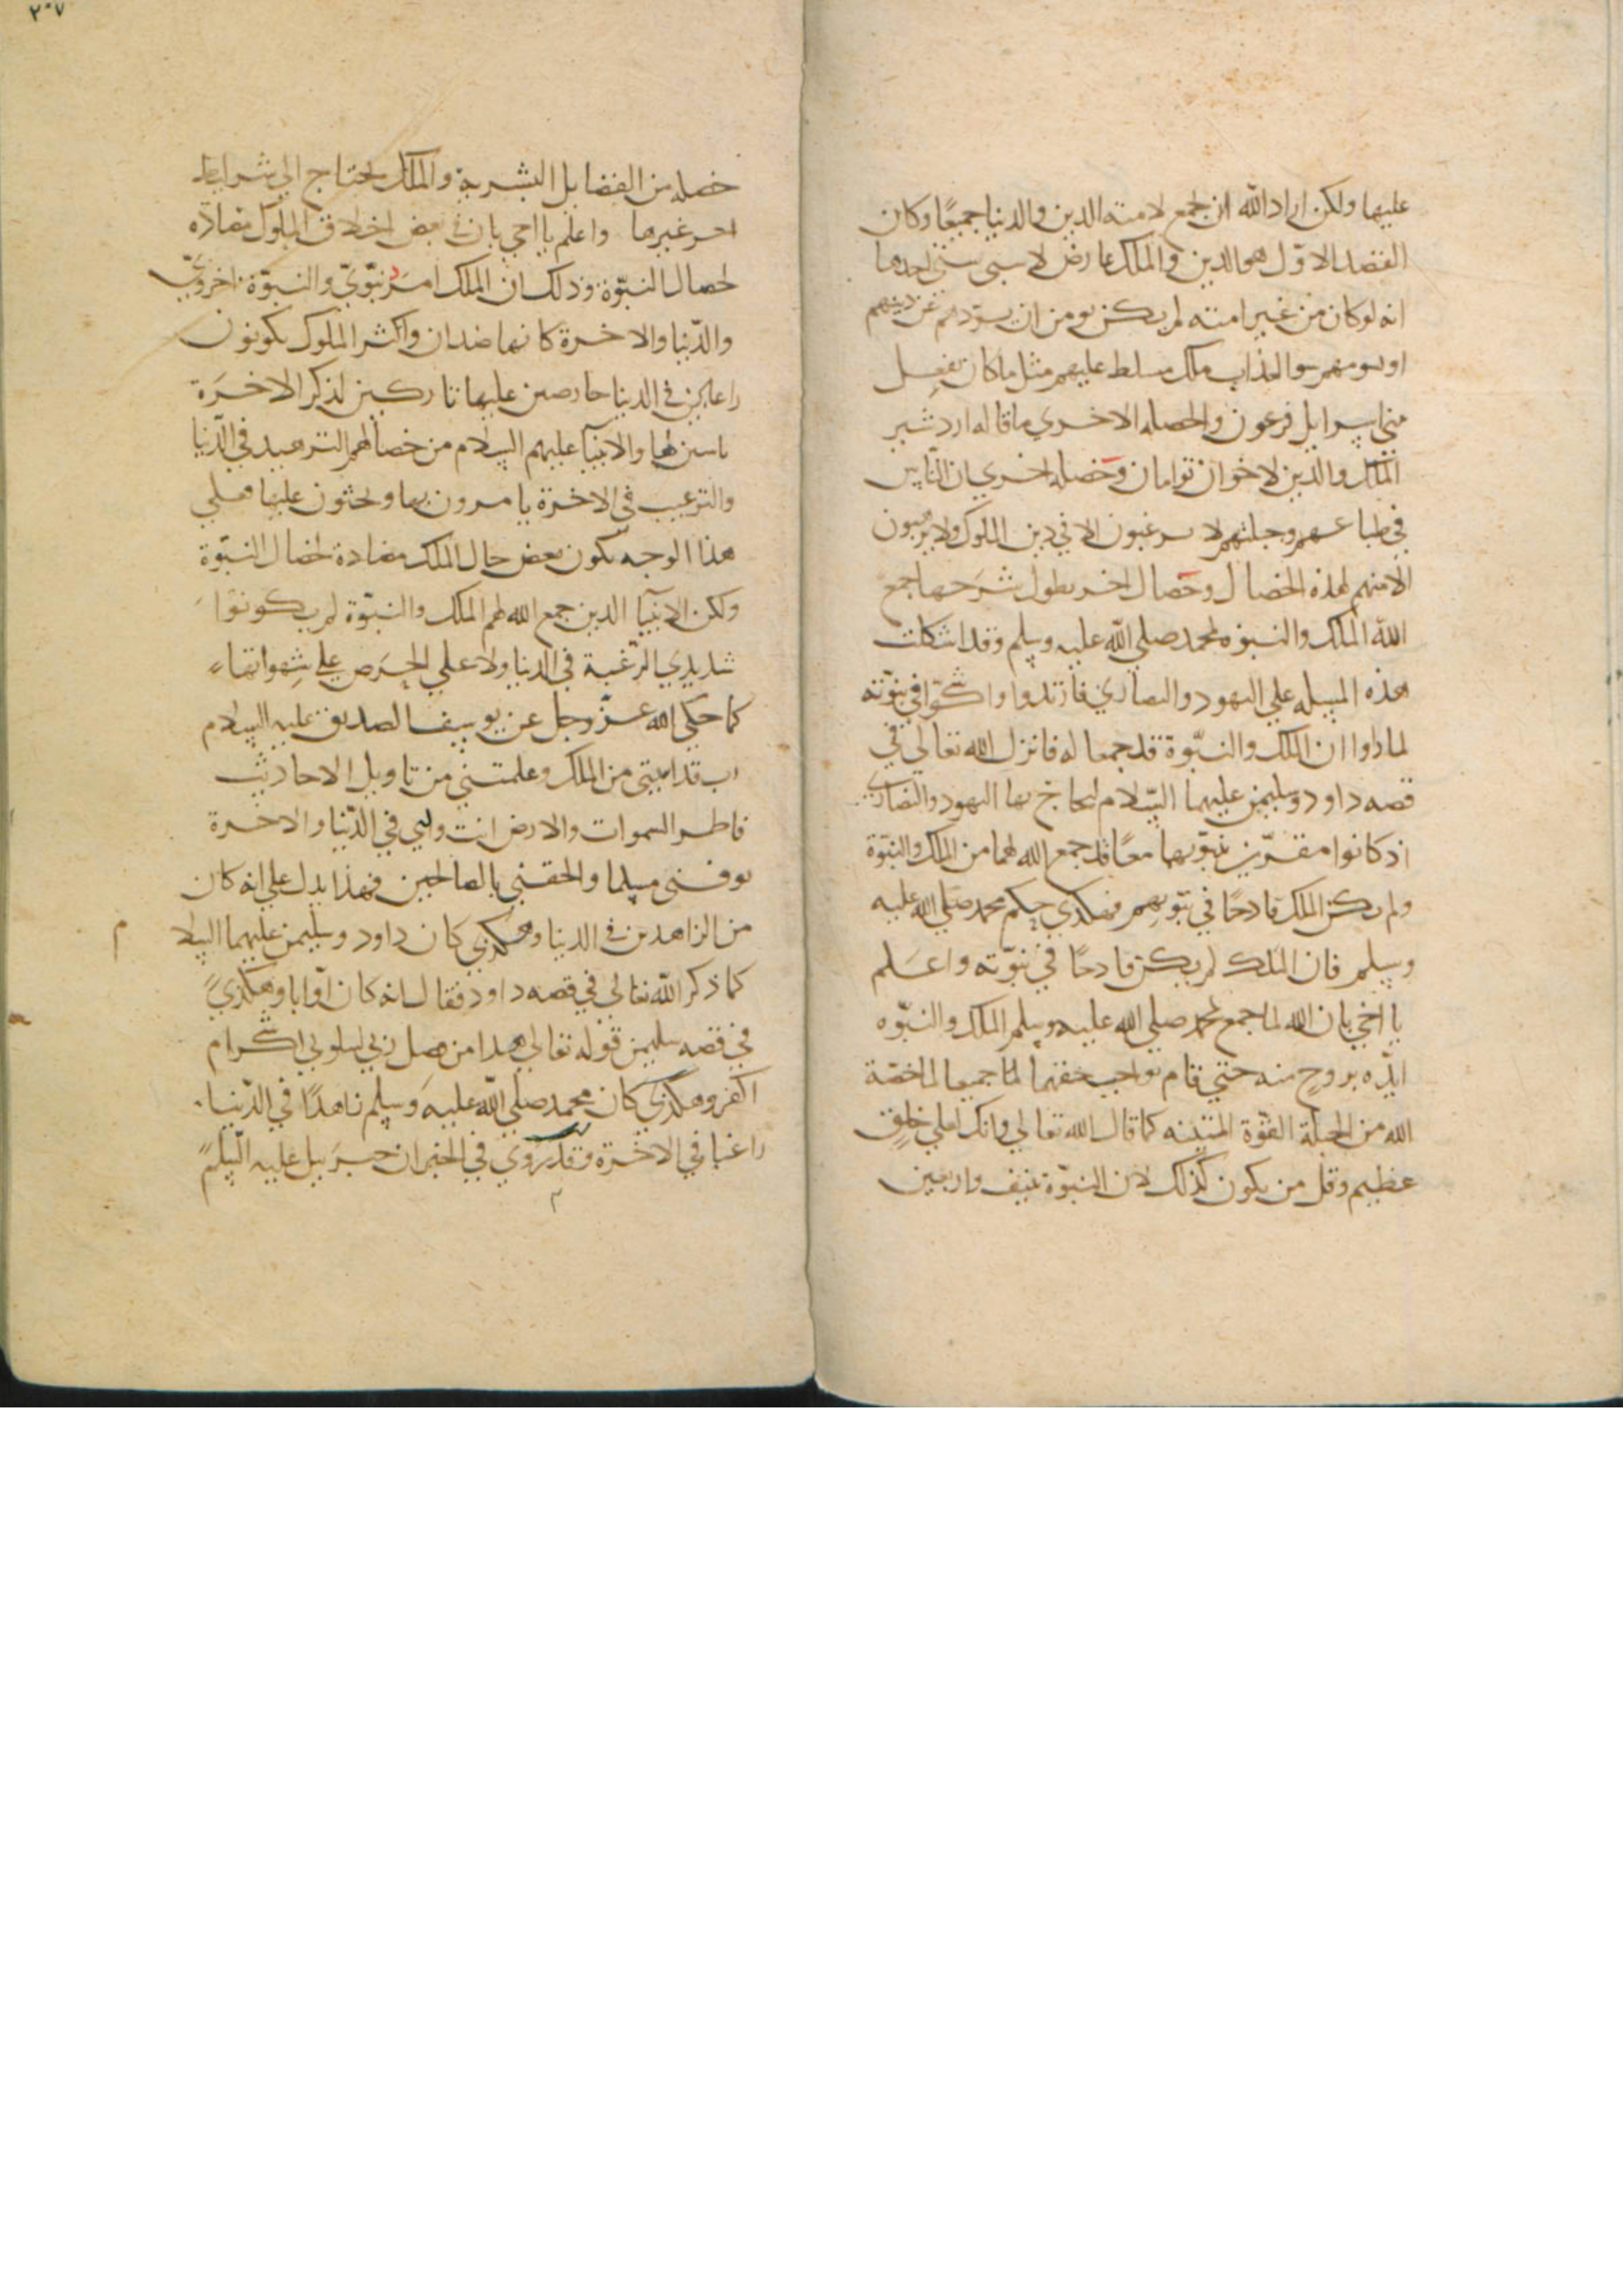 عليها ولكن اراد الله ان يجمع لامته الدين والدنيا جميعًا وكان
القصد الاوّل هو الدين والملك عارض لاسبى شتى احدها
انه لو كان من غير امته لم يكن يومن ان يردهم عن دينهم
او يسومهم سوالعذاب ملك مسلط عليهم مثل ما كان يفعل
ببني اسرايل فرعون والخصله الاخري ما قاله اردشير
الملك والدين لاخوان توامان وخصله اخري ان الناس
في طباعهم وجبلتهم لا يرغبون الا في دين الملوك ولا يرهبون
الا منهم لهذه الخصال وخصال اخر يطول شرحها جمع
الله الملك والنبوه لمحمد صلي الله عليه وسلم وقد اشكلت
هذه المسله علي اليهود والنصاري فارتدوا واشكوا في نبوّته
لما راوا ان الملك والنبوّة قد جمعا له فانزل الله تعالي في
قصه داود وسليمن عليهما السلام ليحاج بها اليهود والنصاري
اذ كانوا مقرّين بنبوّتهما معًا قد جمع الله لهما من الملك والنبوّة
ولم يكن الملك قادحًا في نبوّتهم فهكذي حكم محمد صلي الله عليه
وسلم فان الملك لم يكن قادحًا في نبوّته واعلم
يا اخي بان الله لما جمع لمحمد صلي الله عليه وسلم الملك والنبوّه
ايّده بروحٍ منه حتي قام بواجب حقهما لما جميعا لما خصّه
الله من الجبلّة القوّة المتينه كما قال الله تعالي وانك لعلي خلقٍ
عظيم وقل من يكون كذلك لان النبوّة بنيف واربعين
٢٠٧
خصله من الفضايل البشرية والملك يحتاج الي شرايط
اخر غيرها واعلم يا اخي بان في بعض اخلاق الملوك مضادّه
لخصال النبوّة وذلك ان الملك امر دنيويّ والنبوّة اخرويّ
والدّنيا والاخرة كانهما ضدان واكثر الملوك يكونون
راغبين في الدنيا حارصين عليها تاركين لذكر الاخرة
ناسين لها والانبيآ عليهم السلام من خصالهم التزهيد في الدّنيا
والترغيب في الاخرة يامرون بها ويحثون عليها فعلي
هذا الوجه يكون بعض حال الملك مضادة لخصال النبوّة
ولكن الانبيآ الذين جمع الله لهم الملك والنبوّة لم يكونوا
شديدي الرّغبة في الدنيا ولا علي الحرص علي شهواتها
كما حكي الله عزّ وجل عن يوسف الصديق عليه السلام
رب قد اتيتني من الملك وعلمتني من تاويل الاحاديث
فاطر السموات والارض انت وليي في الدّنيا والاخرة
توفني مسلما والحقني بالصالحين فهذا يدل علي انه كان
من الزاهدين في الدنيا وهكذي كان داود وسليمن عليهما السلا
م
كما ذكر الله تعالي في قصه داود فقال انه كان اوّابا وهكذي
في قصه سليمن قوله تعالي هدا من فضل ربي ليبلوني ااشكر ام
اكفر وهكذي كان محمد صلّي الله عليه وسلم زاهدًا في الدّنيا
راغبا في الاخرة وقد روي في الخبر ان جبريل عليه السلم